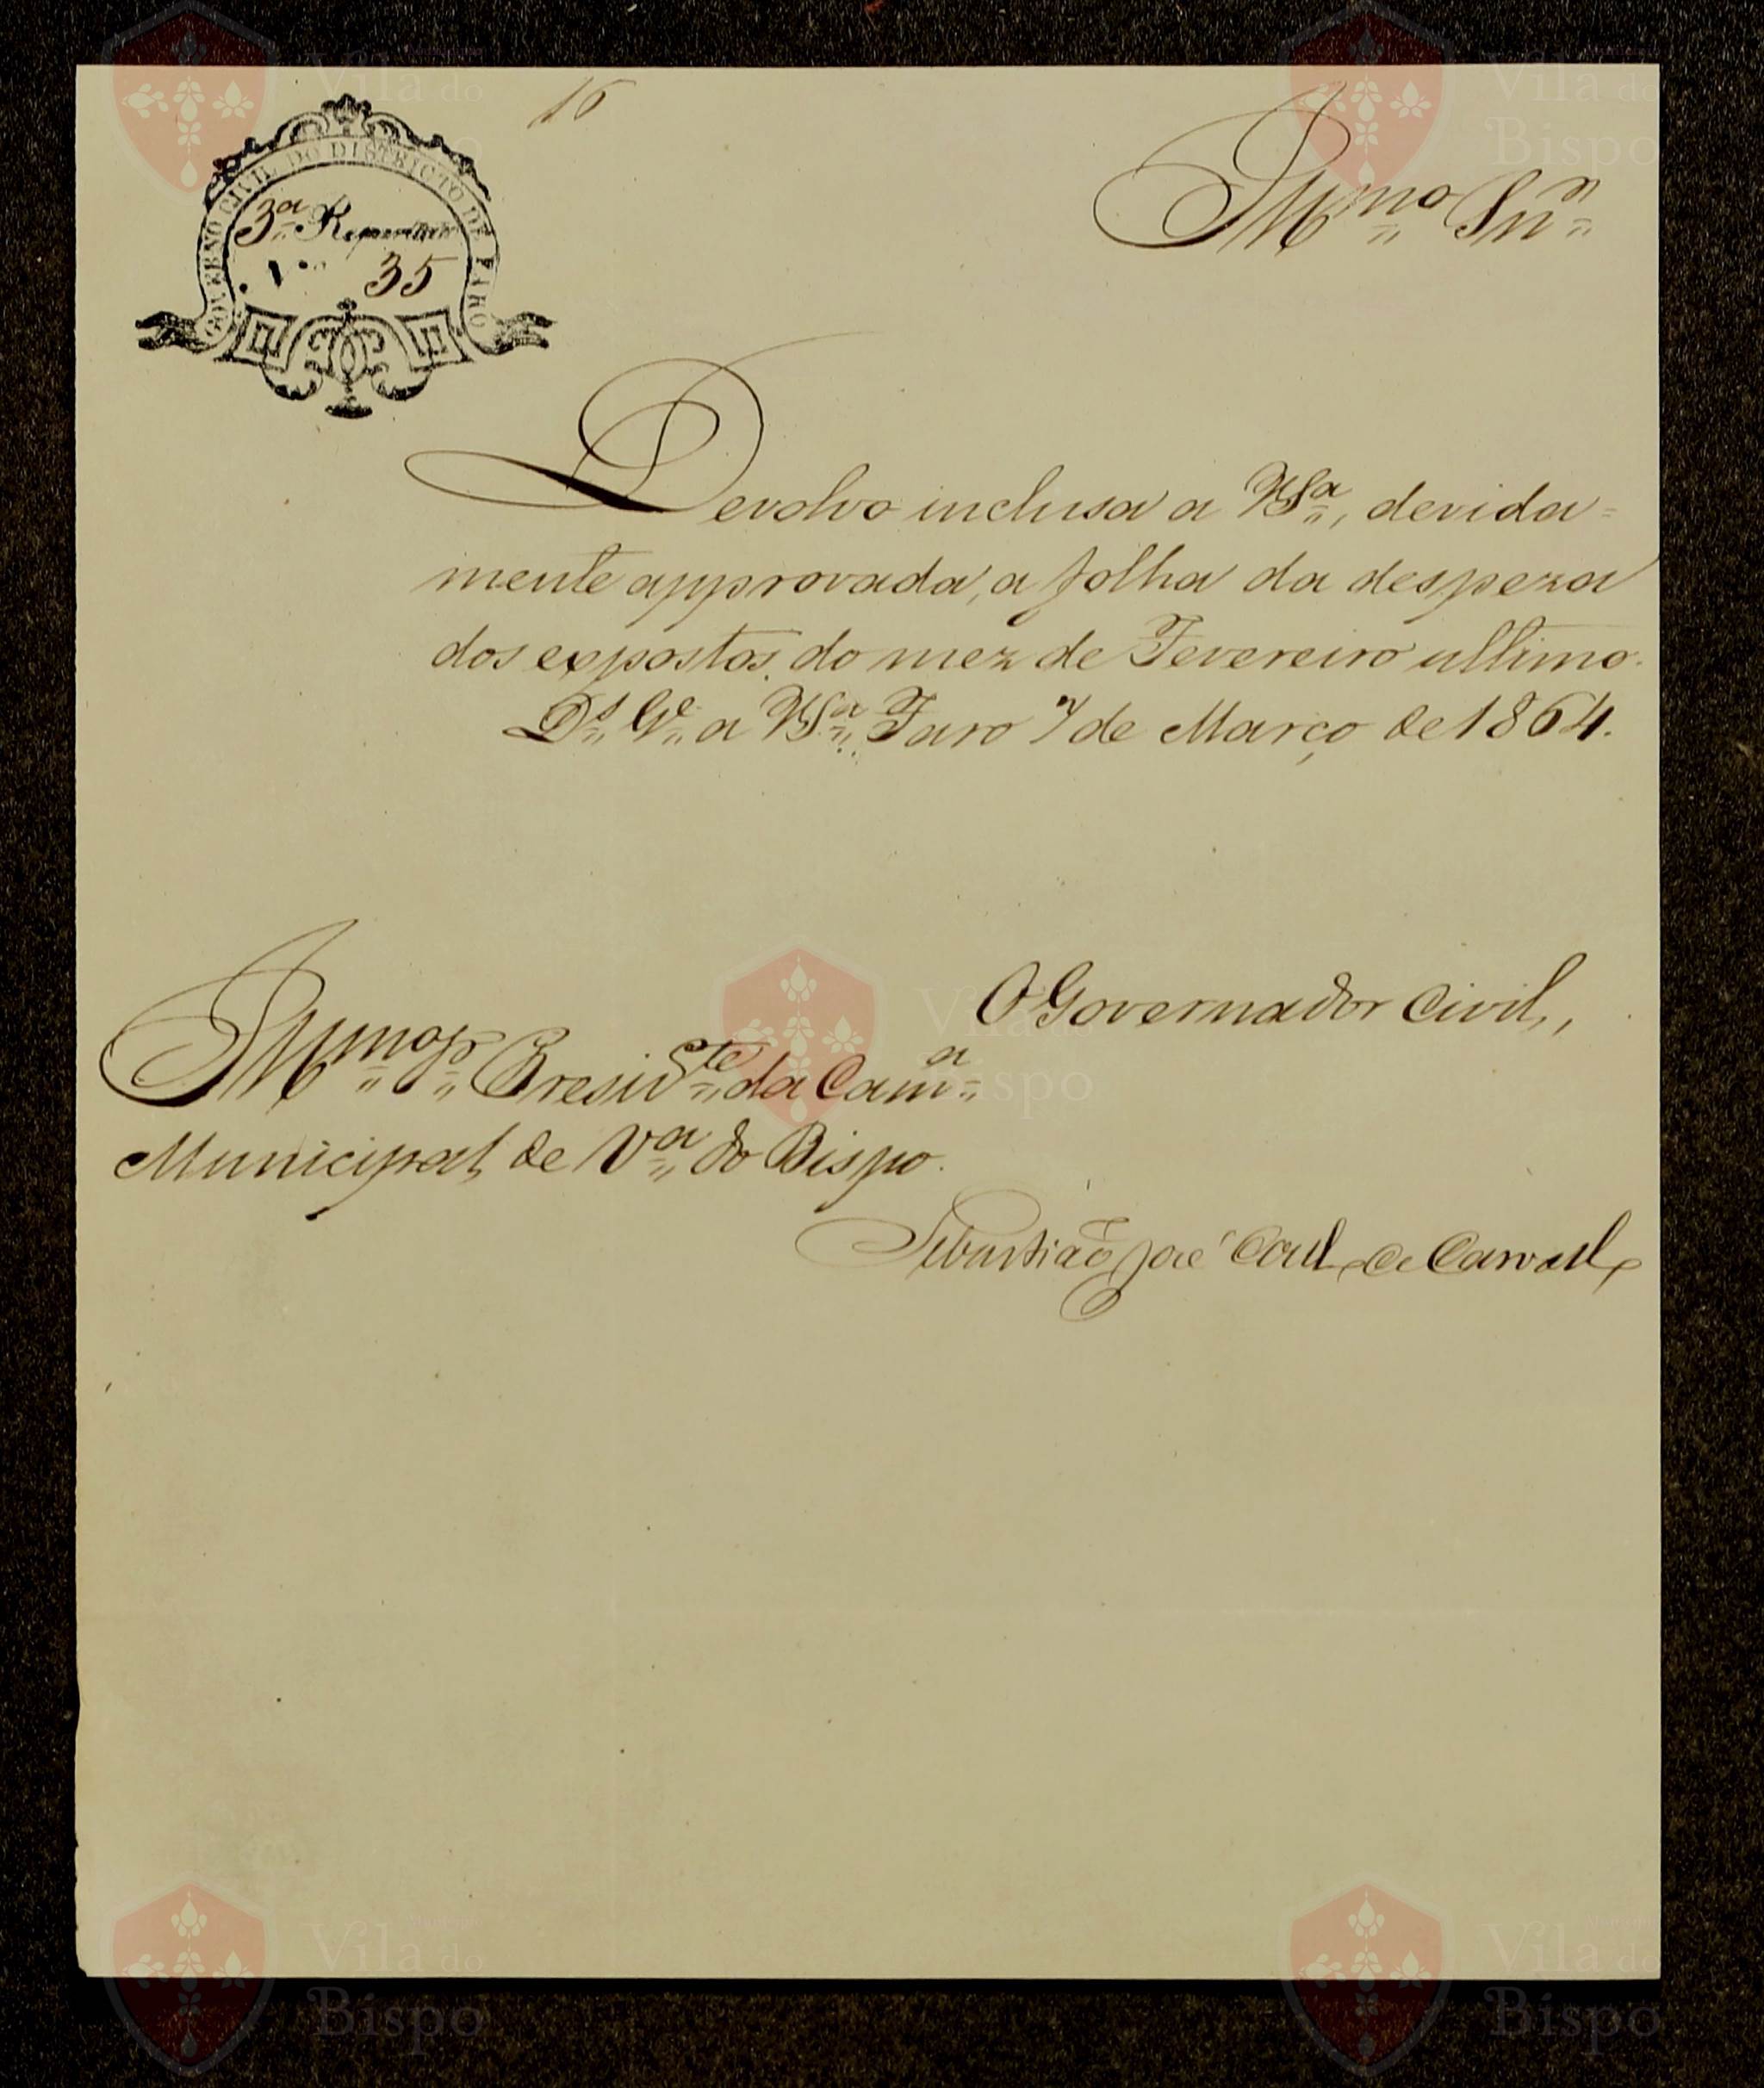 16
GOVERNO CIVIL DO DISTRICTO DE FARO
3ª Repartição
Nº 35
Illmo Snr
Devolvo inclusa a VSª, devida=
mente approvada, a folha da despeza
dos expostos do mez de Fevereiro ultimo.
Ds Ge a VSª Faro 7 de Março de 1864.
O Governador Civil,
Illmo Sr Presidte da Camª
Municipal de Vª do Bispo.
Sebastião José Coelho de Carvalho
Vila do Bispo
Vila do Bispo
Vila do Bispo
Vila do Bispo
Vila do Bispo